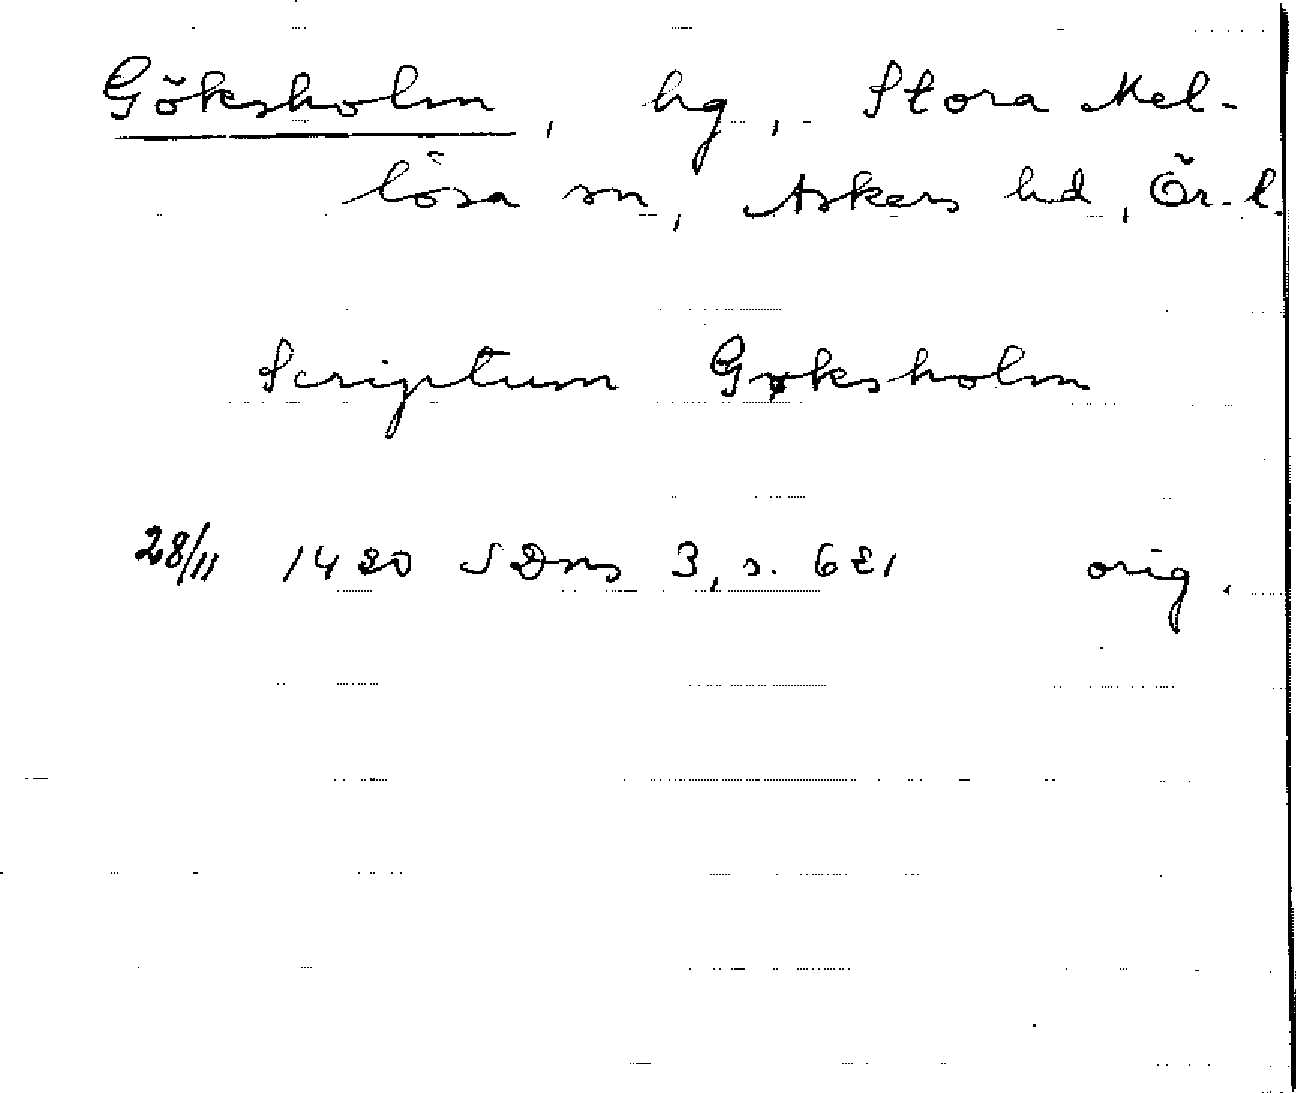 Göksholm, hg, Stora Mel-
lösa sn, Askers hd, Ör. l.
Scriptum Gøksholm
28/11 1420 SDns 3, s. 621 orig.